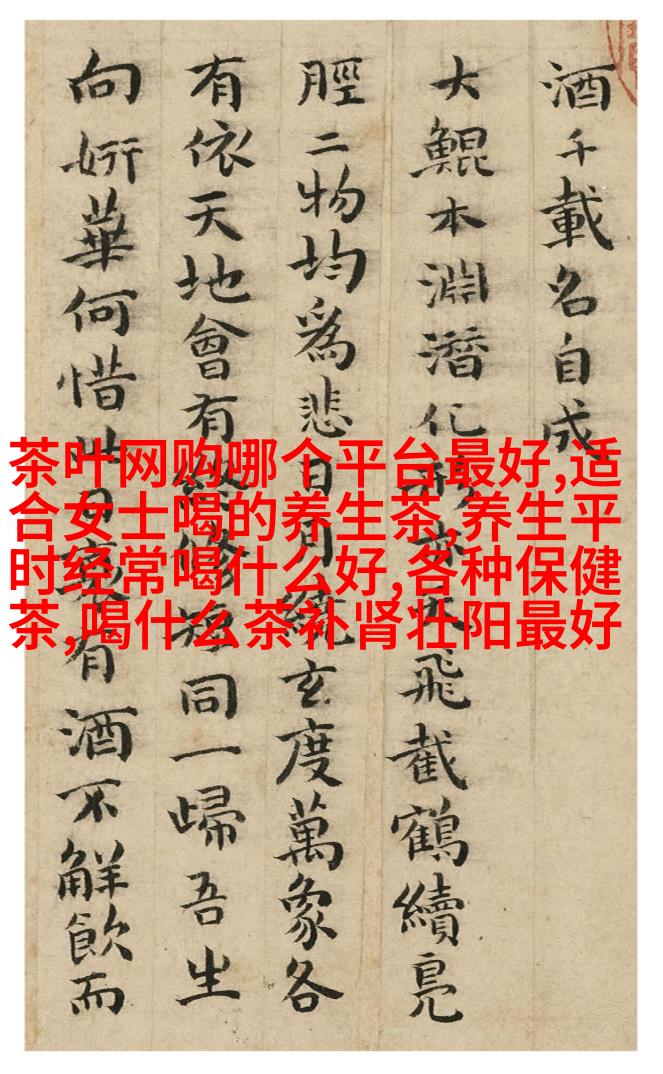 酒千載名自成
大鯤本淵潛化形飛截鶴續鳧
脛二物均爲悲日月繞玄度萬象各
有依天地會有終脩短同一歸吾生
向妍華何惜此日有酒不解飲而
茶叶网购哪个平台最好,适
合女士喝的养生茶,养生平
时经常喝什么好,各种保健
茶,喝什么茶补肾壮阳最好